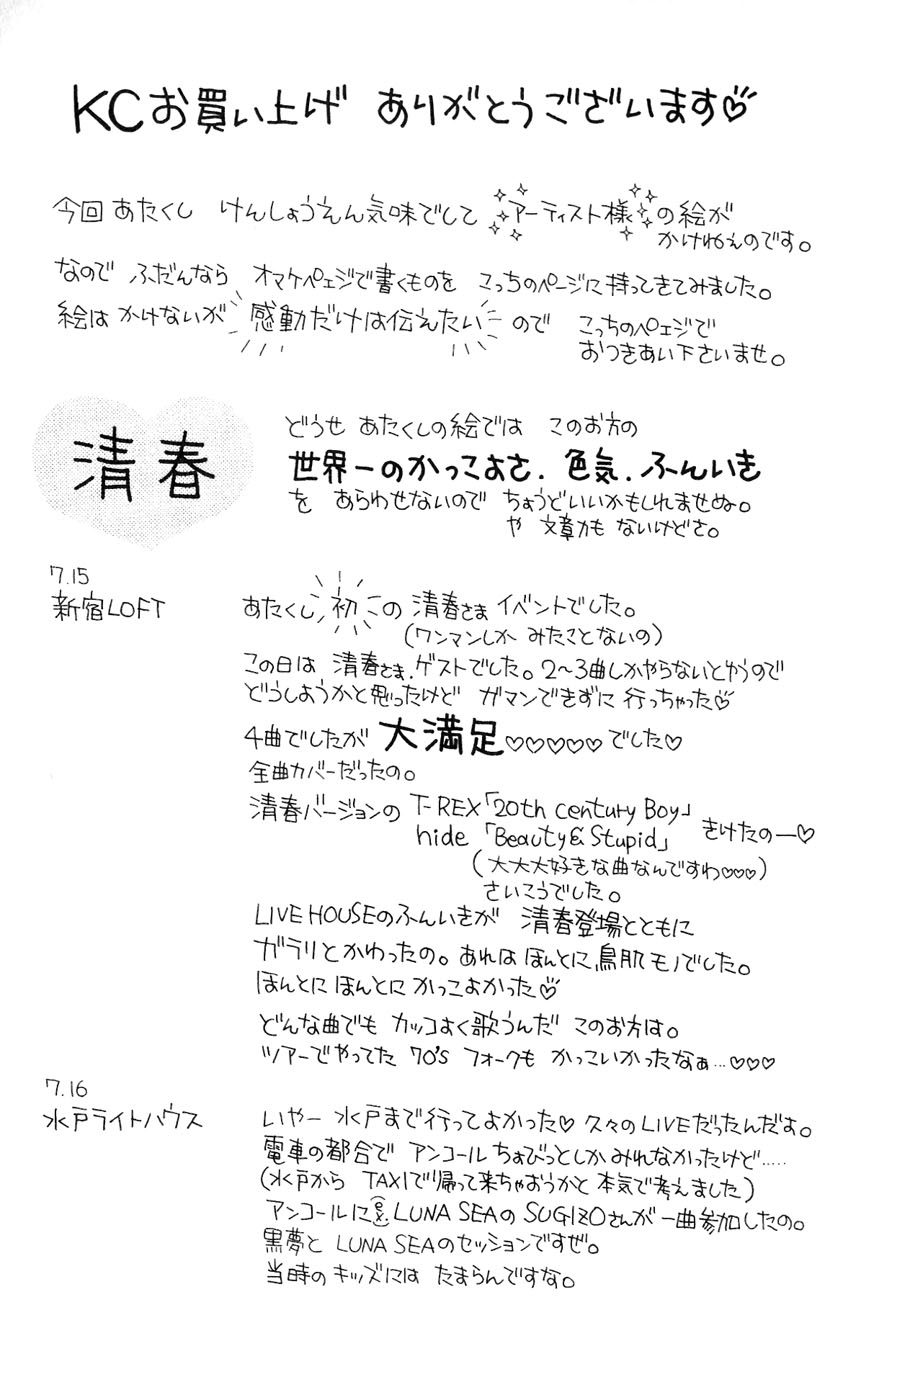 KCお買い上げ ありがとうございます♡
今回 あたくし けんしょうえん気味でして アーティスト様の絵が
かけねえのです。
なので ふだんなら オマケペェジで書くものを こっちのページに持ってきてみました。
絵は かけないが 感動だけは伝えたい ので こっちのペェジで
おつきあい下さいませ。
清春
どうせ あたくしの絵では このお方の
世界一のかっこよさ.色気.ふんいき
を あらわせないので ちょうどいいかもしれませぬ。
や 文章力も ないけどさ。
7.15
新宿LOFT
あたくし 初 の 清春さま イベントでした。
(ワンマンしか みたことないの)
この日は 清春さま.ゲストでした。2〜3曲しかやらないとゆうので
どうしようかと思ったけど ガマンできずに 行っちゃった♡
4曲でしたが 大満足♡♡♡♡♡でした♡
全曲カバーだったの。
清春バージョンの T-REX「20th century Boy」
hide「Beauty&Stupid」 きけたのー♡
(大大大好きな曲なんですわ♡♡♡)
さいこうでした。
LIVE HOUSEのふんいきが 清春登場とともに
ガラリとかわったの。あれは ほんとに鳥肌モノでした。
ほんとに ほんとに かっこよかった♡
どんな曲でも カッコよく歌うんだ このお方は。
ツアーでやってた 70's フォークも かっこいかったなぁ…♡♡♡
7.16
水戸ライトハウス
いやー 水戸まで行ってよかった♡ 久々のLIVEだったんだよ。
電車の都合で アンコール ちょびっとしか みれなかったけど……
(水戸から TAXIで帰って来ちゃおうかと 本気で考えました)
アンコールに(ex.)LUNA SEAの SUGIZOさんが 一曲参加したの。
黒夢と LUNA SEAのセッションですぜ。
当時の キッズには たまらんですな。